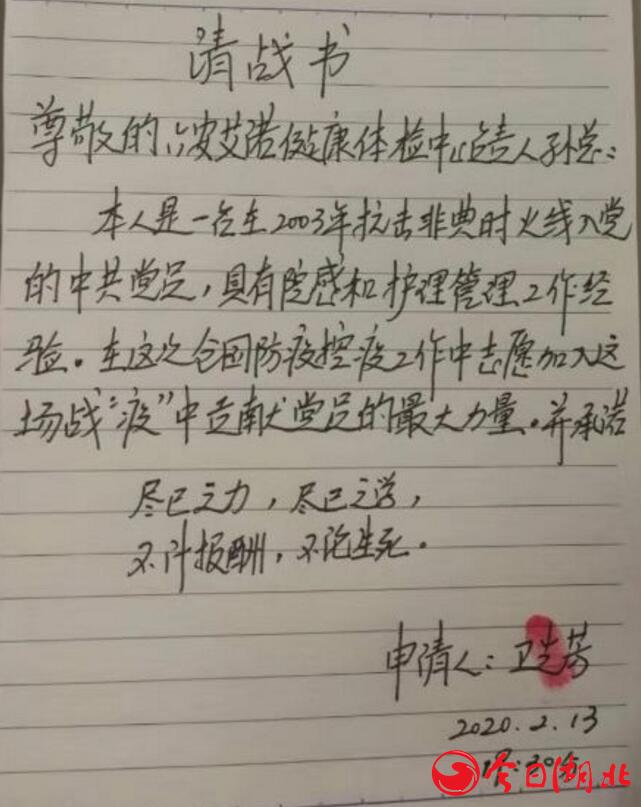 请战书
尊敬的心安艾诺健康体检中心负责人孙总:
本人是一名在2003年抗击非典时火线入党
的中共党员,具有院感和护理管理工作经
验。在这次全国防疫控疫工作中志愿加入这
场战“疫”中贡献党员的最大力量。并承诺
尽己之力,尽己之学,
不计报酬,不论生死。
申请人:卫 芳
2020.2.13
今日湖北